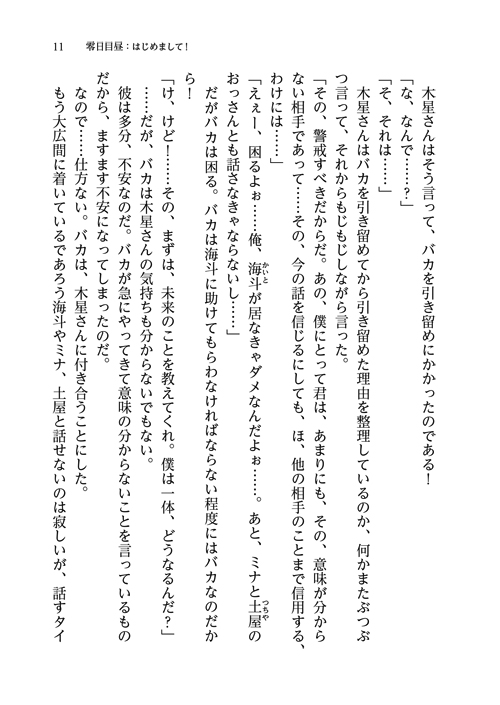 11　零日目昼：はじめまして！
　木星さんはそう言って、バカを引き留めにかかったのである！
「な、なんで……？」
「そ、それは……」
　木星さんはバカを引き留めてから引き留めた理由を整理しているのか、何かまたぶつぶ
つ言って、それからもじもじしながら言った。
「その、警戒すべきだからだ。あの、僕にとって君は、あまりにも、その、意味が分から
ない相手であって……その、今の話を信じるにしても、ほ、他の相手のことまで信用する、
わけには……」
「えぇー、困るよぉ……俺、海斗が居なきゃダメなんだよぉ……。あと、ミナと土屋の
おっさんとも話さなきゃならないし……」
　だがバカは困る。バカは海斗に助けてもらわなければならない程度にはバカなのだか
ら！
「け、けど！……その、まずは、未来のことを教えてくれ。僕は一体、どうなるんだ？」
　……だが、バカは木星さんの気持ちも分からないでもない。
　彼は多分、不安なのだ。バカが急にやってきて意味の分からないことを言っているもの
だから、ますます不安になってしまったのだ。
　なので……仕方ない。バカは、木星さんに付き合うことにした。
　もう大広間に着いているであろう海斗やミナ、土屋と話せないのは寂しいが、話すタイ